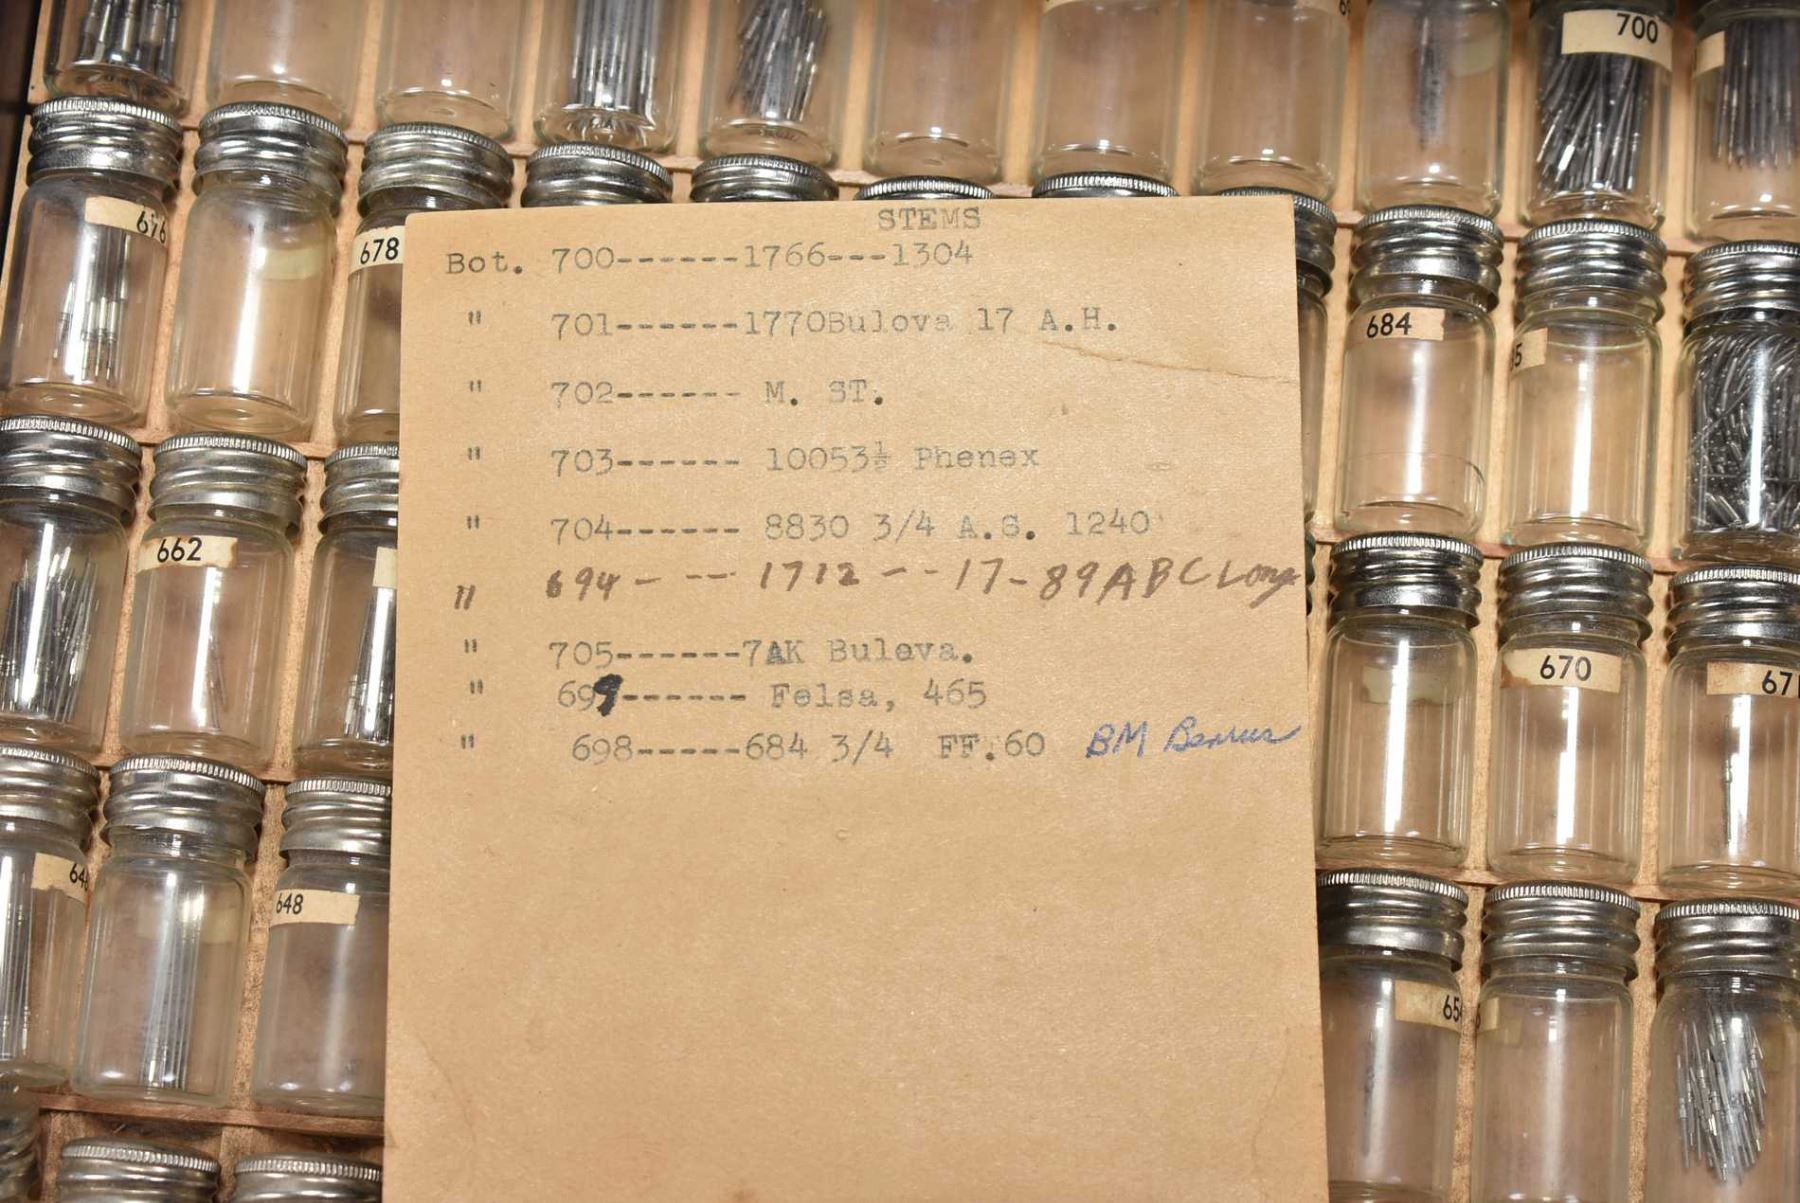 700
676
678
684
662
670
671
648
STEMS
Bot. 700------1766---1304
" 701------1770Bulova 17 A.H.
" 702------ M. ST.
" 703------ 10053½ Phenex
" 704------ 8830 3/4 A.S. 1240
" 694 - -- 1712 -- 17-89ABC Long
" 705------7AK Buleva.
" 699------ Felsa, 465
" 698-----684 3/4 FF.60 BM Benrus